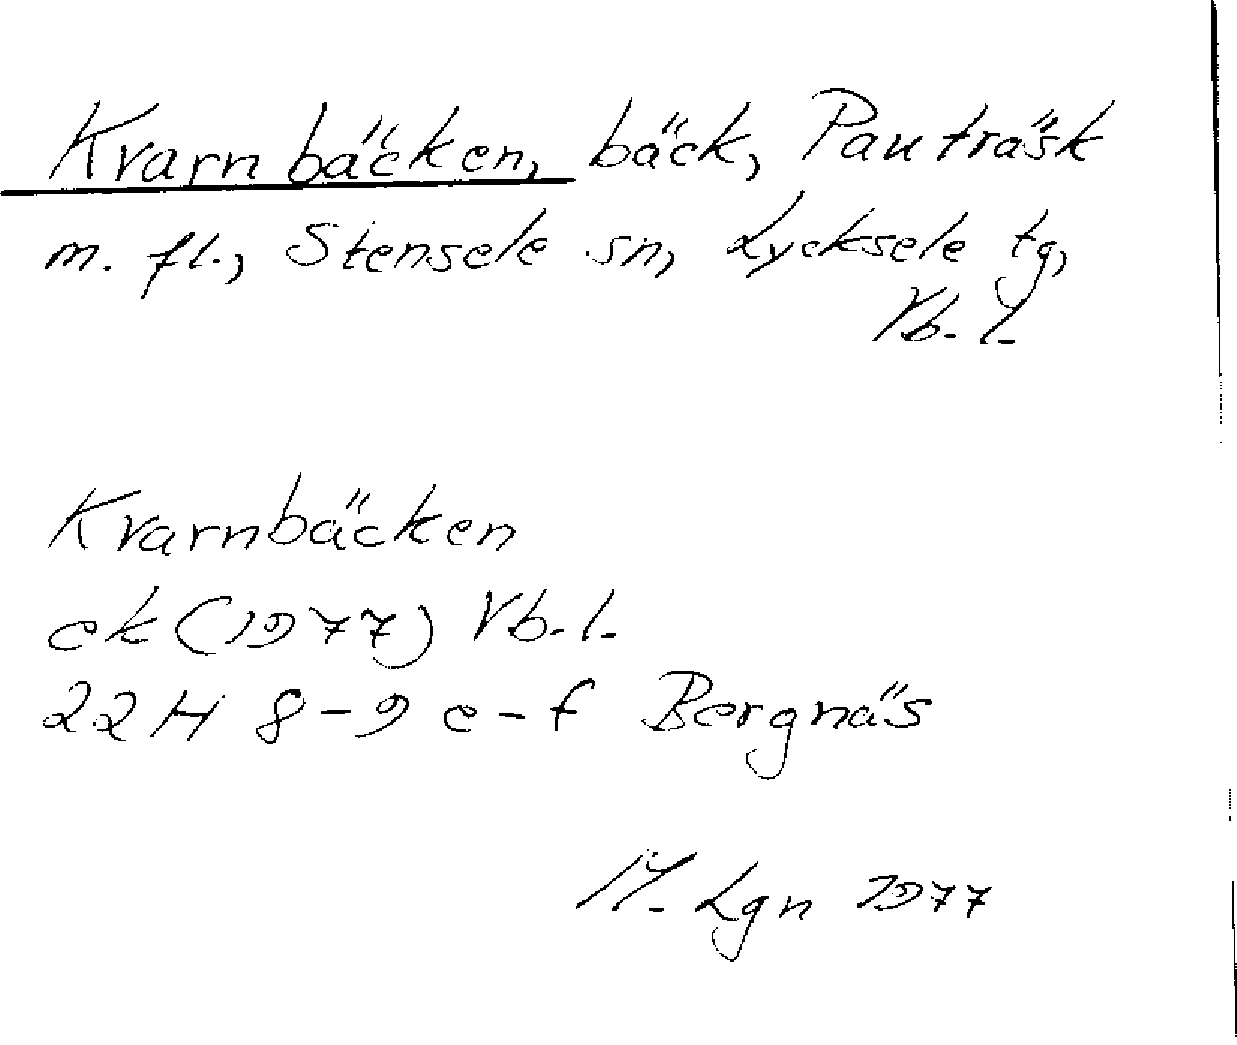 Kvarnbäcken, bäck, Pauträsk
m. fl., Stensele sn, Lycksele tg,
Vb. l.
Kvarnbäcken
ek (1977) Vb. l.
22H 8-9 e-f Bergnäs
Lgn 1977